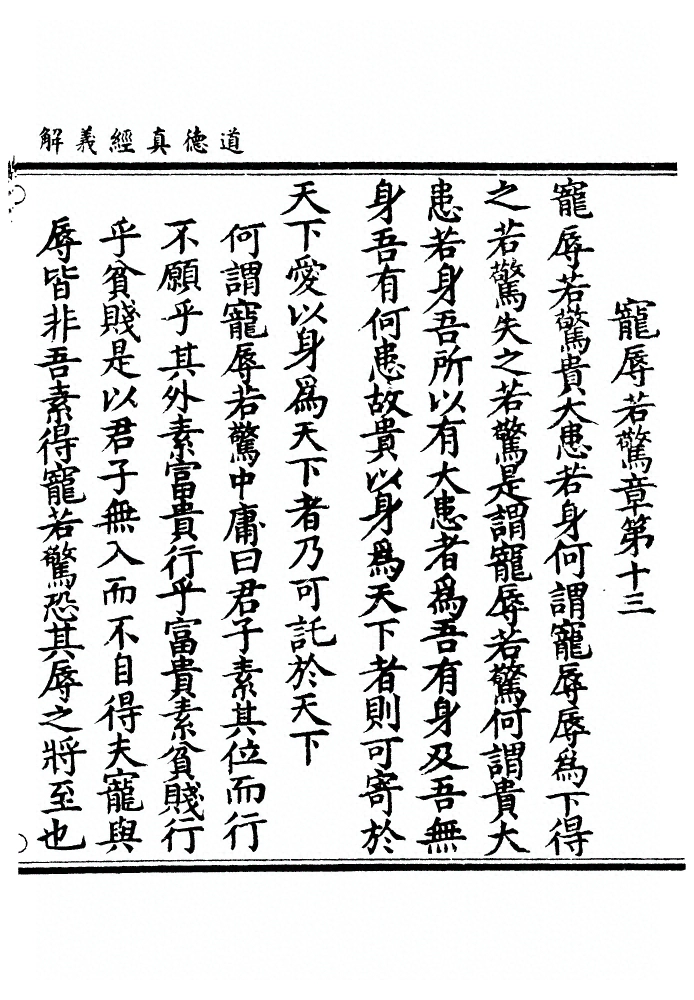 道德真經義解
寵辱若驚章第十三
寵辱若驚貴大患若身何謂寵辱辱為下得
之若驚失之若驚是謂寵辱若驚何謂貴大
患若身吾所以有大患者爲吾有身及吾無
身吾有何患故貴以身爲天下者則可寄於
天下愛以身爲天下者乃可託於天下
何謂寵辱若驚中庸曰君子素其位而行
不願乎其外素富貴行乎富貴素貧賤行
乎貧賤是以君子無入而不自得夫寵與
辱皆非吾素得寵若驚恐其辱之將至也